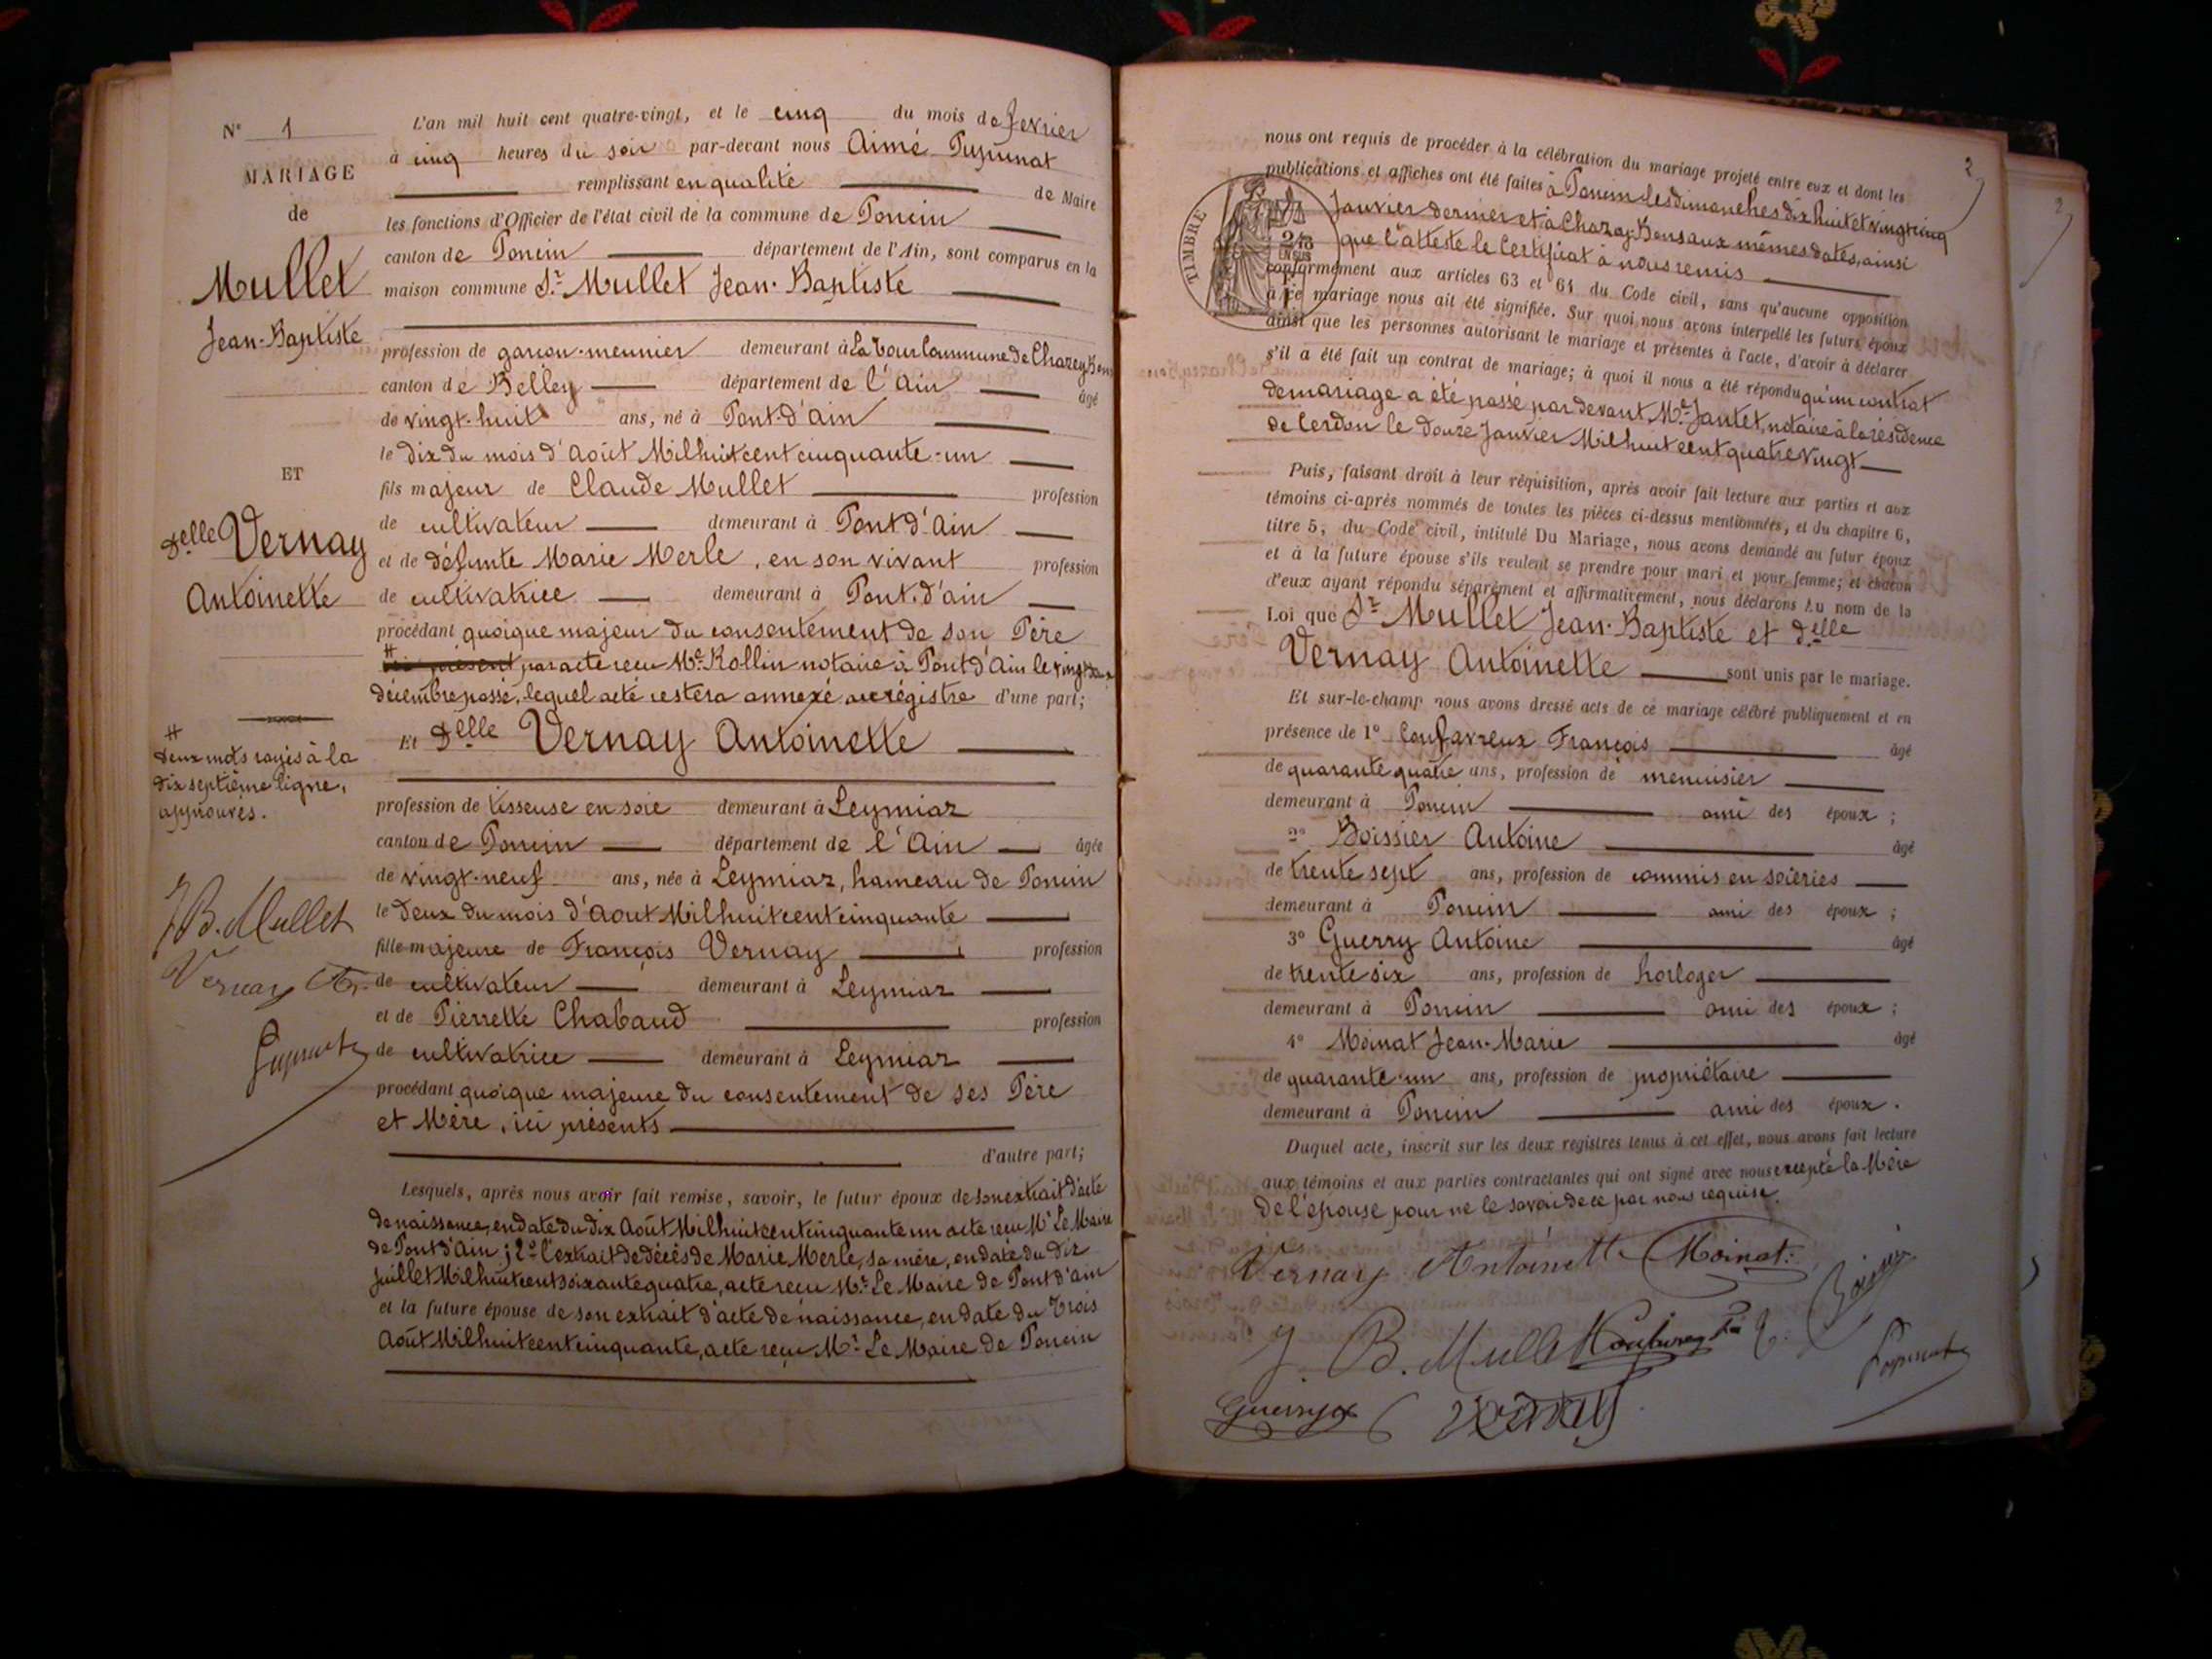 N° 1
MARIAGE
de
Mullet
Jean-Baptiste
ET
Delle Vernay
Antoinette
# Deux mots rayés à la
dix septième ligne,
approuvés.
J B. Mullet
Vernay
L'an mil huit cent quatre-vingt, et le cinq du mois de fevrier
à cinq heures du soir par-devant nous Aimé
remplissant en qualité de Maire
les fonctions d'Officier de l'état civil de la commune de Poncin
canton de Poncin département de l'Ain, sont comparus en la
maison commune Sr Mullet Jean-Baptiste
profession de garçon-meunier demeurant à La Tour Commune de Chazey Bons
canton de Belley département de l'Ain âgé
de vingt-huit ans, né à Pont-d'Ain
le dix du mois d'Août Mil huit cent cinquante-un
fils majeur de Claude Mullet profession
de cultivateur demeurant à Pont d'Ain
et de défunte Marie Merle, en son vivant profession
de cultivatrice demeurant à Pont-d'ain
procédant quoique majeur du consentement de son Père
# ici présent par acte reçu Me Rollin notaire à Pont d'Ain le vingt
décembre passé, lequel acte restera annexé au régistre d'une part;
Et Delle Vernay Antoinette
profession de tisseuse en soie demeurant à Leymiaz
canton de Poncin département de l'Ain âgée
de vingt-neuf ans, née à Leymiaz, hameau de Poncin
le deux du mois d'Aout Mil huit cent cinquante
fille majeure de François Vernay profession
de cultivateur demeurant à Leymiaz
et de Pierrette Chabaud profession
de cultivatrice demeurant à Leymiaz
procédant quoique majeure du consentement de ses Père
et Mère, ici présents
d'autre part;
Lesquels, après nous avoir fait remise, savoir, le futur époux de son extrait d'acte
de naissance, en date du dix Août Mil huit cent cinquante un acte reçu Mr Le Maire
de Pont d'Ain; 2° l'extrait de décès de Marie Merle, sa mère, en date du dix
Juillet Mil huit cent soixante quatre, acte reçu Mr Le Maire de Pont d'ain
et la future épouse de son extrait d'acte de naissance, en date du trois
Août Mil huit cent cinquante, acte reçu Mr Le Maire de Poncin
2
nous ont requis de procéder à la célébration du mariage projeté entre eux et dont les
publications et affiches ont été faites à Poncin les dimanches dix huit et vingt cinq
Janvier dernier et à Chazey-Bons aux mêmes dates, ainsi
que l'atteste le Certificat à nous remis
TIMBRE
conformément aux articles 63 et 64 du Code civil, sans qu'aucune opposition
à ce mariage nous ait été signifiée. Sur quoi nous avons interpellé les futurs époux
ainsi que les personnes autorisant le mariage et présentes à l'acte, d'avoir à déclarer
s'il a été fait un contrat de mariage; à quoi il nous a été répondu qu'un contrat
de mariage a été passé par devant Me Jantet, notaire à la résidence
de Cerdon le douze Janvier Mil huit cent quatre vingt
Puis, faisant droit à leur réquisition, après avoir fait lecture aux parties et aux
témoins ci-après nommés de toutes les pièces ci-dessus mentionnées, et du chapitre 6,
titre 5, du Code civil, intitulé Du Mariage, nous avons demandé au futur époux
et à la future épouse s'ils veulent se prendre pour mari et pour femme; et chacun
d'eux ayant répondu séparément et affirmativement, nous déclarons au nom de la
Loi que Sr Mullet Jean-Baptiste et delle
Vernay Antoinette sont unis par le mariage.
Et sur-le-champ nous avons dressé acte de ce mariage célébré publiquement et en
présence de 1° Confavreux François âgé
de quarante quatre ans, profession de menuisier
demeurant à Poncin ami des époux;
2° Boissier Antoine âgé
de trente sept ans, profession de commis en soieries
demeurant à Poncin ami des époux;
3° Guerry Antoine âgé
de trente six ans, profession de horloger
demeurant à Poncin ami des époux;
4° Moinat Jean-Marie âgé
de quarante-un ans, profession de propriétaire
demeurant à Poncin ami des époux.
Duquel acte, inscrit sur les deux registres tenus à cet effet, nous avons fait lecture
aux témoins et aux parties contractantes qui ont signé avec nous excepté la Mère
de l'épouse pour ne le savoir de ce par nous requise.
Vernay Antoinette Moinat
J. B. Mullet